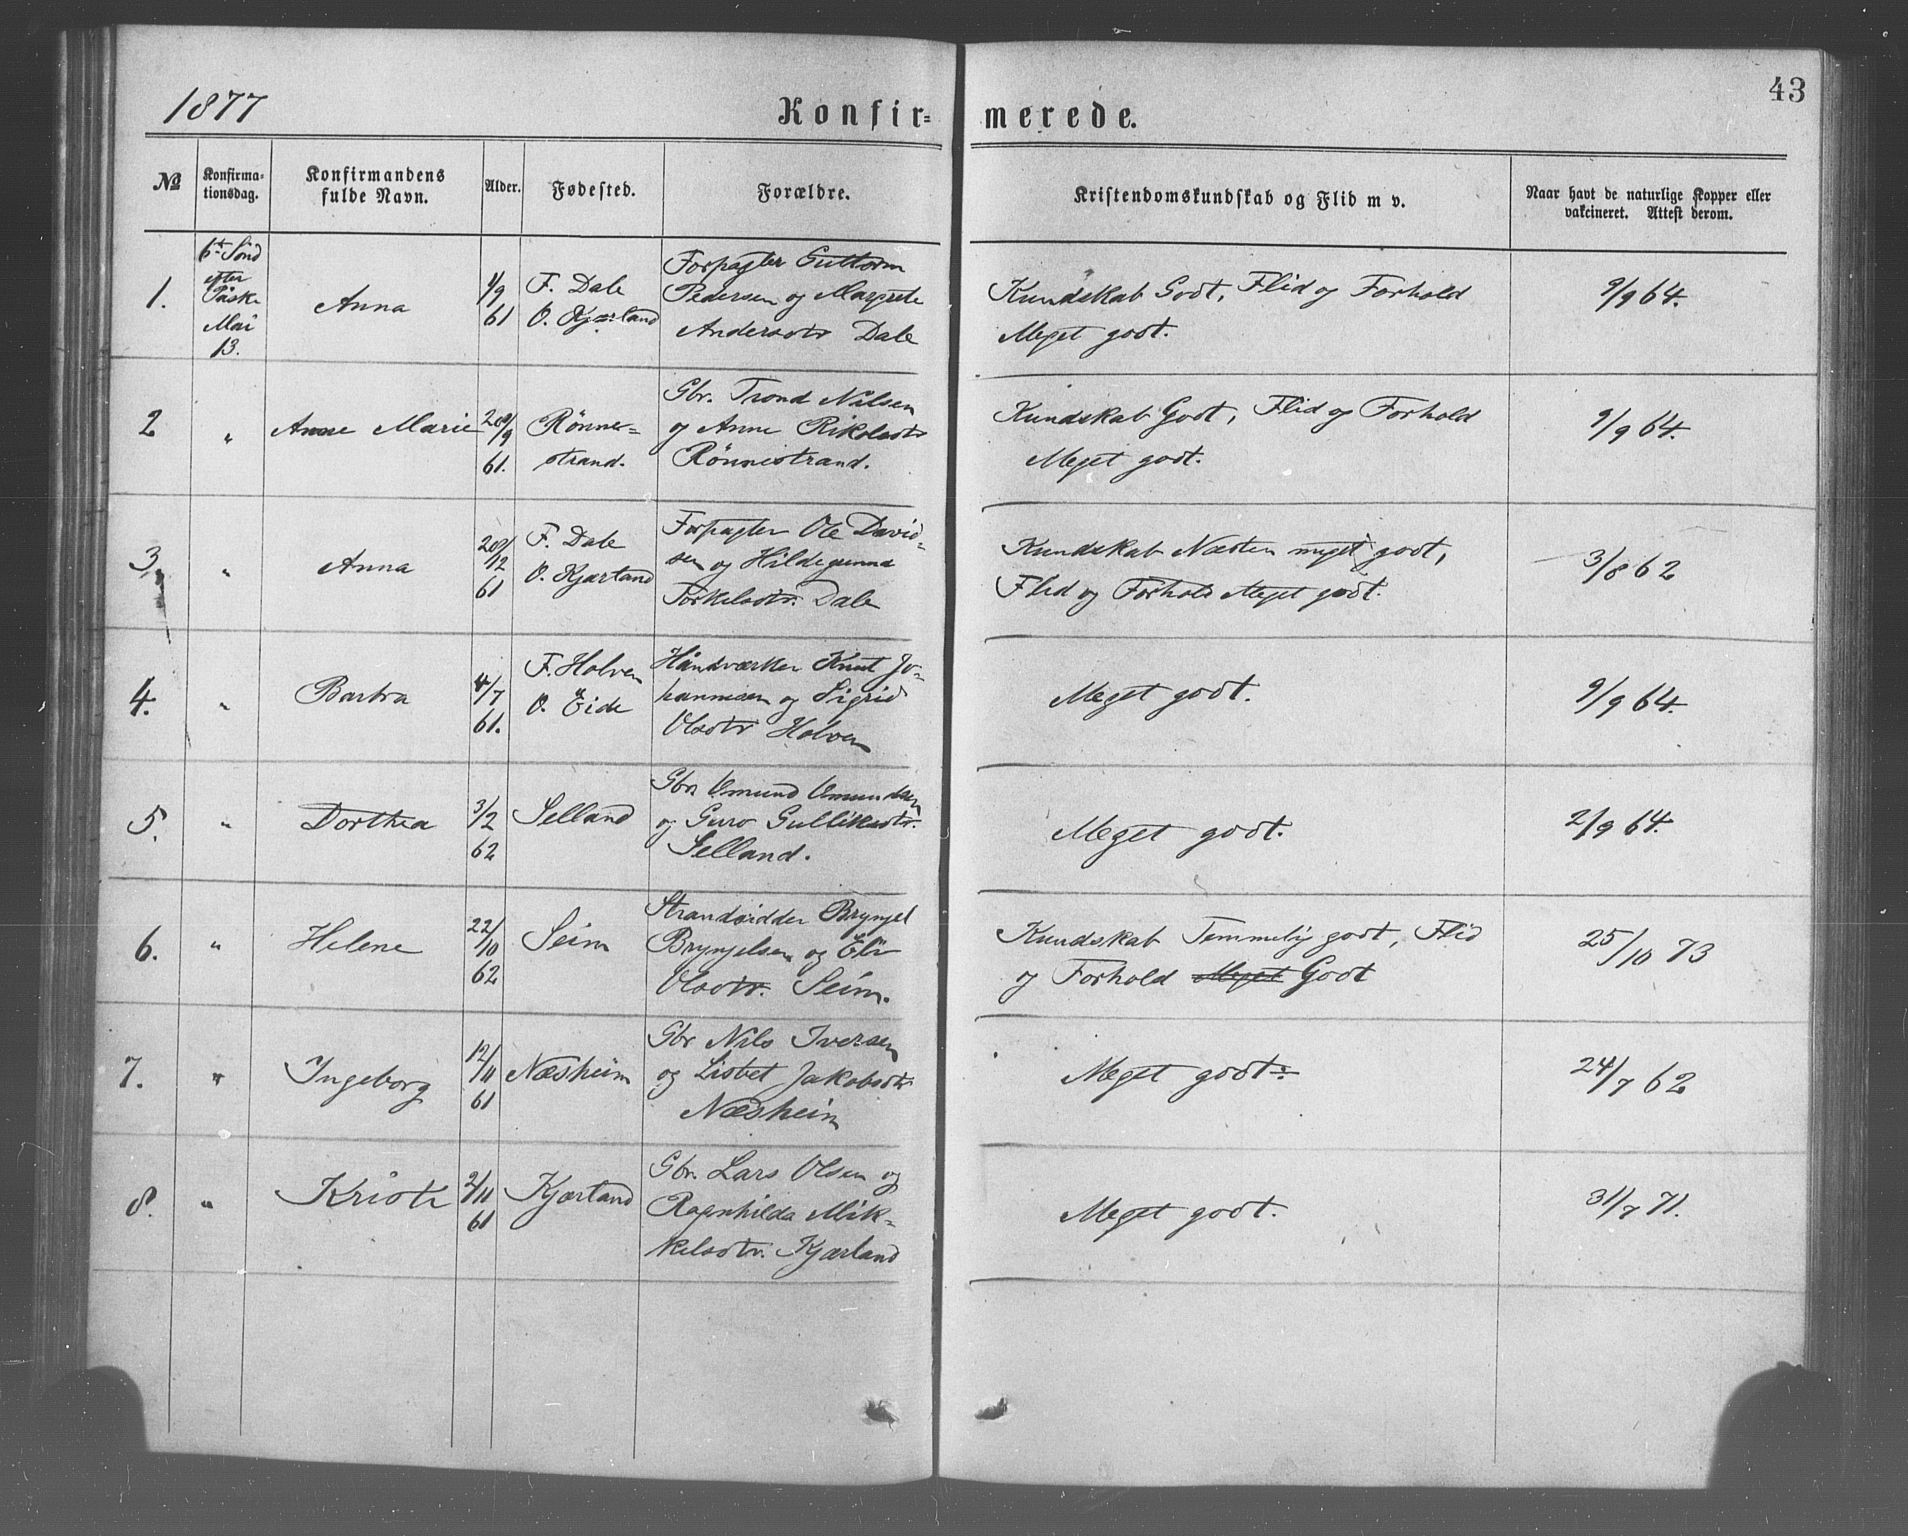 1877
Konfir=
merede.
43
No
Konfirma-
tionsdag.
Konfirmandens
fulde Navn.
Alder.
Fødested.
Forældre.
Kristendomskundskab og Flid m v.
Naar havt de naturlige Kopper eller
vakcineret. Attest derom.
1.
6t Sönd
efter
Påske
Mai
13.
Anna
/9
61
F. Dale
O. Kjærland
Forpagter Guttorm
Pedersen og Margrete
Andersdtr Dale
Kundskab Godt, Flid og Forhold
Meget godt.
9/9 64.
2
"
Anne Marie
28/9
61.
Rönne=
strand.
Gbr. Trond Nilsen
og Anne Rikolsdtr
Rönnestrand.
Kundskab Godt, Flid og Forhold
Meget godt.
9/9 64.
3.
"
Anna
20/12
61
F. Dale
O. Kjærland
Forpagter Ole David=
sen og Hildegunna
Torkelsdtr. Dale
Kundskab Næsten meget godt,
Flid og Forhold Meget godt.
3/8 62
4.
"
Barbra
4/7
61.
F. Holven
O. Eide
Håndværker Knut Jo-
hannesen og Sigrid
Olsdtr Holven
Meget godt.
9/9 64.
5.
"
Dorthea
3/2
62
Selland
Gbr. Omund Omundsen
og Guro Gulliksdtr.
Selland.
Meget godt.
2/9 64.
6.
"
Helene
22/10
62
Seim
Strandsidder Brynjel
Brynjelsen og Eli
Olsdtr. Seim.
Kundskab Temmelig godt, Flid
og Forhold Meget Godt
25/10 73
7.
"
Ingeborg
12/11
61
Næsheim
Gbr Nils Iversen
og Lisbet Jakobsdtr
Næsheim
Meget godt.
24/7 62
8.
"
Kristi
2/11
61
Kjærland
Gbr. Lars Olsen og
Ragnhilda Mik=
kelsdtr. Kjærland
Meget godt.
31/7 71.